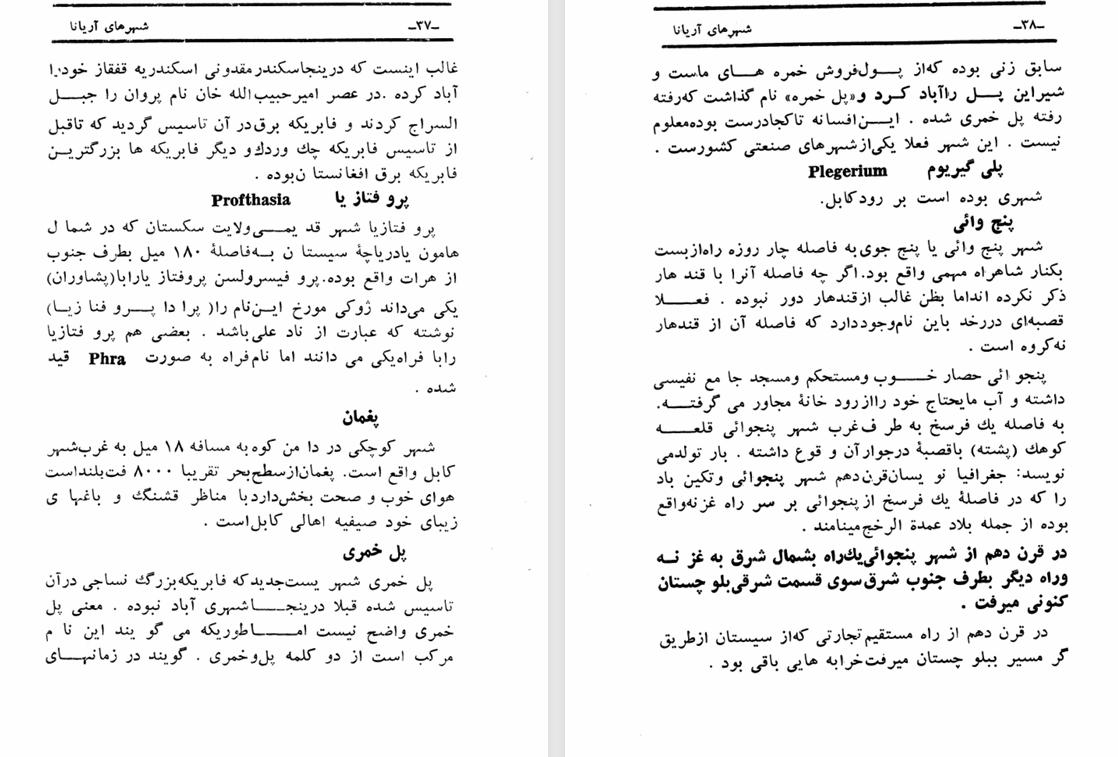 شهرهای آریانا ـ۳۷ـ
غالب اینست که درینجاسکندر مقدونی اسکندریه قفقاز خودرا
آباد کرده .در عصر امیرحبیب‌الله خان نام پروان را جبـــل
السراج کردند و فابریکه برق‌در آن تاسیس گردید که تاقبل
از تاسیس فابریکه چك وردك‌و دیگر فابریکه ها بزرگتریـن
فابریکه برق افغانستا ن‌بوده .
پرو فتاز یا Profthasia
پرو فتازیا شهر قد یمــی‌ولایت سکستان که در شما ل
هامون یادریاچهٔ سیستا ن بــه‌فاصلهٔ ۱۸۰ میل بطرف جنوب
از هرات واقع بوده.پرو فیسرولسن پروفتاز یارابا(پشاوران)
یکی می‌داند ژوکی مورخ ایــن‌نام را( پرا دا پــرو فنا زیـا)
نوشته که عبارت از ناد علی‌باشد . بعضی هم پرو فتازیا
رابا فراه‌یکی می دانند اما نام‌فراه به صورت Phra قید
شده .
پغمان
شهر کوچکی در دا من کوه‌به مسافه ۱۸ میل به غرب‌شهر
کابل واقع است. پغمان‌ازسطح‌بحر تقریبا ۸۰۰۰ فت‌بلنداست
هوای خوب و صحت بخش‌داردبا مناظر قشنگ و باغها ی
زیبای خود صیفیه اهالی کابل‌است .
پل خمری
پل خمری شهر یست‌جدیدکه فابریکه‌بزرگ نساجی درآن
تاسیس شده قبلا درینجـــاشهری آباد نبوده . معنی پل
خمری واضح نیست امــــاطوریکه می گو یند این نا م
مرکب است از دو کلمه پل‌وخمری . گویند در زمانهـــای
شهرهای آریانا ـ۳۸ـ
سابق زنی بوده که‌از پــول‌فروش خمره هــای ماست و
شیراین پــل راآباد کـرد و«پل خمره» نام گذاشت که‌رفته
رفته پل خمری شده . ایــن‌افسانه تاکجادرست بوده‌معلوم
نیست . این شهر فعلا یکی‌ازشهرهای صنعتی کشورست .
پلی گیریوم Plegerium
شهری بوده است بر رودکابل.
پنج وائی
شهر پنج وائی یا پنج جوی‌به فاصله چار روزه راه‌ازبست
بکنار شاهراه مهمی واقع بود.اگر چه فاصله آنرا با قند هار
ذکر نکرده انداما بظن غالب ازقندهار دور نبوده . فعـــلا
قصبه‌ای دررخد باین نام‌وجوددارد که فاصله آن از قندهار
نه‌کروه است .
پنجو ائی حصار خـــوب ومستحکم ومسجد جا مع نفیسی
داشته و آب مایحتاج خود رااز رود خانهٔ مجاور می گرفتــه.
به فاصله یك فرسخ به طر ف‌غرب شهر پنجوائی قلعـــه
کوهك (پشته) باقصبهٔ درجوارآن و قوع داشته . بار تولدمی
نویسد: جغرافیا نو یسان‌قرن‌دهم شهر پنجوائی وتکین باد
را که در فاصلهٔ یك فرسخ ازپنجوائی بر سر راه غزنه‌واقع
بوده از جمله بلاد عمدة الرخج‌مینامند .
در قرن دهم از شهر پنجوائی‌یك‌راه بشمال شرق به غز نــه
وراه دیگر بطرف جنوب شرق‌سوی قسمت شرقی‌بلو چستان
کنونی میرفت .
در قرن دهم از راه مستقیم‌تجارتی که‌از سیستان ازطریق
گر مسیر ببلو چستان میرفت‌خرابه هایی باقی بود .